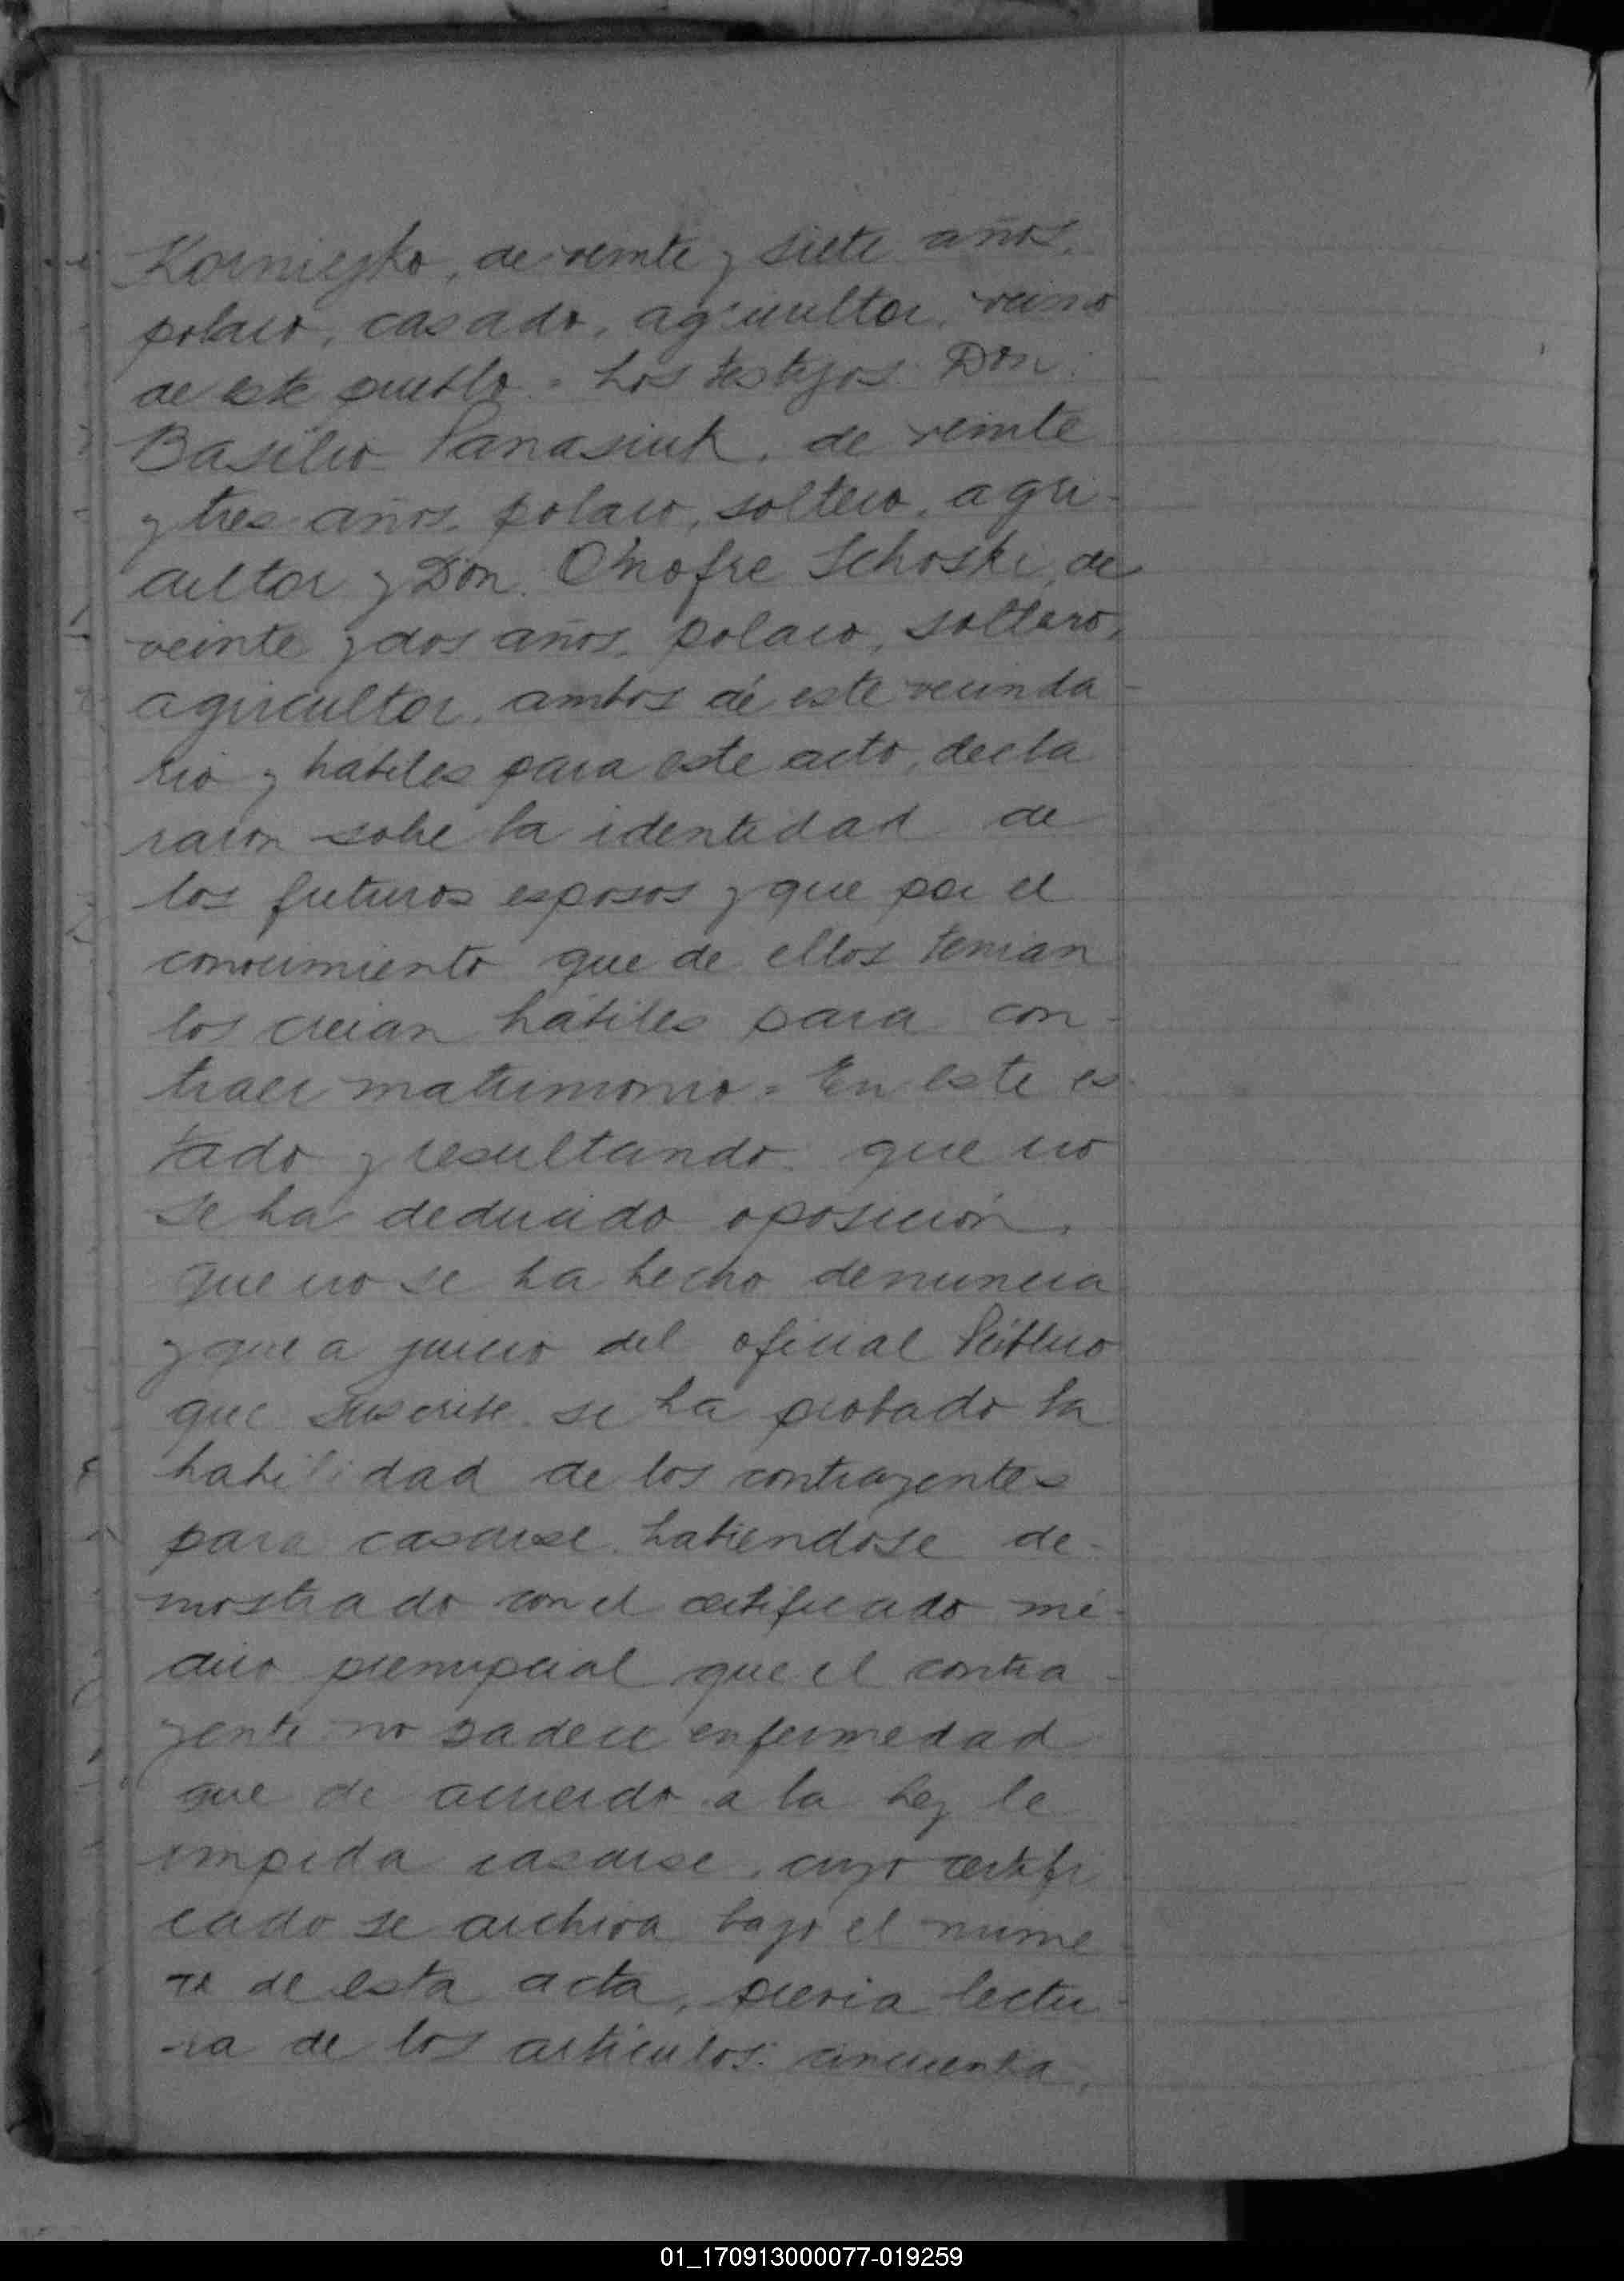 Korniejko, de veinte y siete años,
polaco, casado, agricultor, vecino
de este pueblo = Los testigos Don
Basilio Panasiuk, de veinte
y tres años, polaco, soltero, agri-
cultor y Don Onofre Schoski, de
veinte y dos años, polaco, soltero,
agricultor, ambos de este vecinda-
rio y hábiles para este acto, decla
raron sobre la identidad de
los futuros esposos y que por el
conocimiento que de ellos tenian
los creian hábiles para con-
traer matrimonio = En este es-
tado y resultando que no
se ha deducido oposición,
que no se ha hecho denuncia
y que a juicio del oficial Público
que suscribe se ha probado la
habilidad de los contrayentes
para casarse, habiendose de-
mostrado con el certificado mé-
dico prenupcial que el contra-
yente no padece enfermedad
que de acuerdo a la Ley le
impida casarse, cuyo certifi
cado se archiva bajo el nume-
ro de esta acta, previa lectu-
ra de los artículos: cincuenta,
01_170913000077-019259